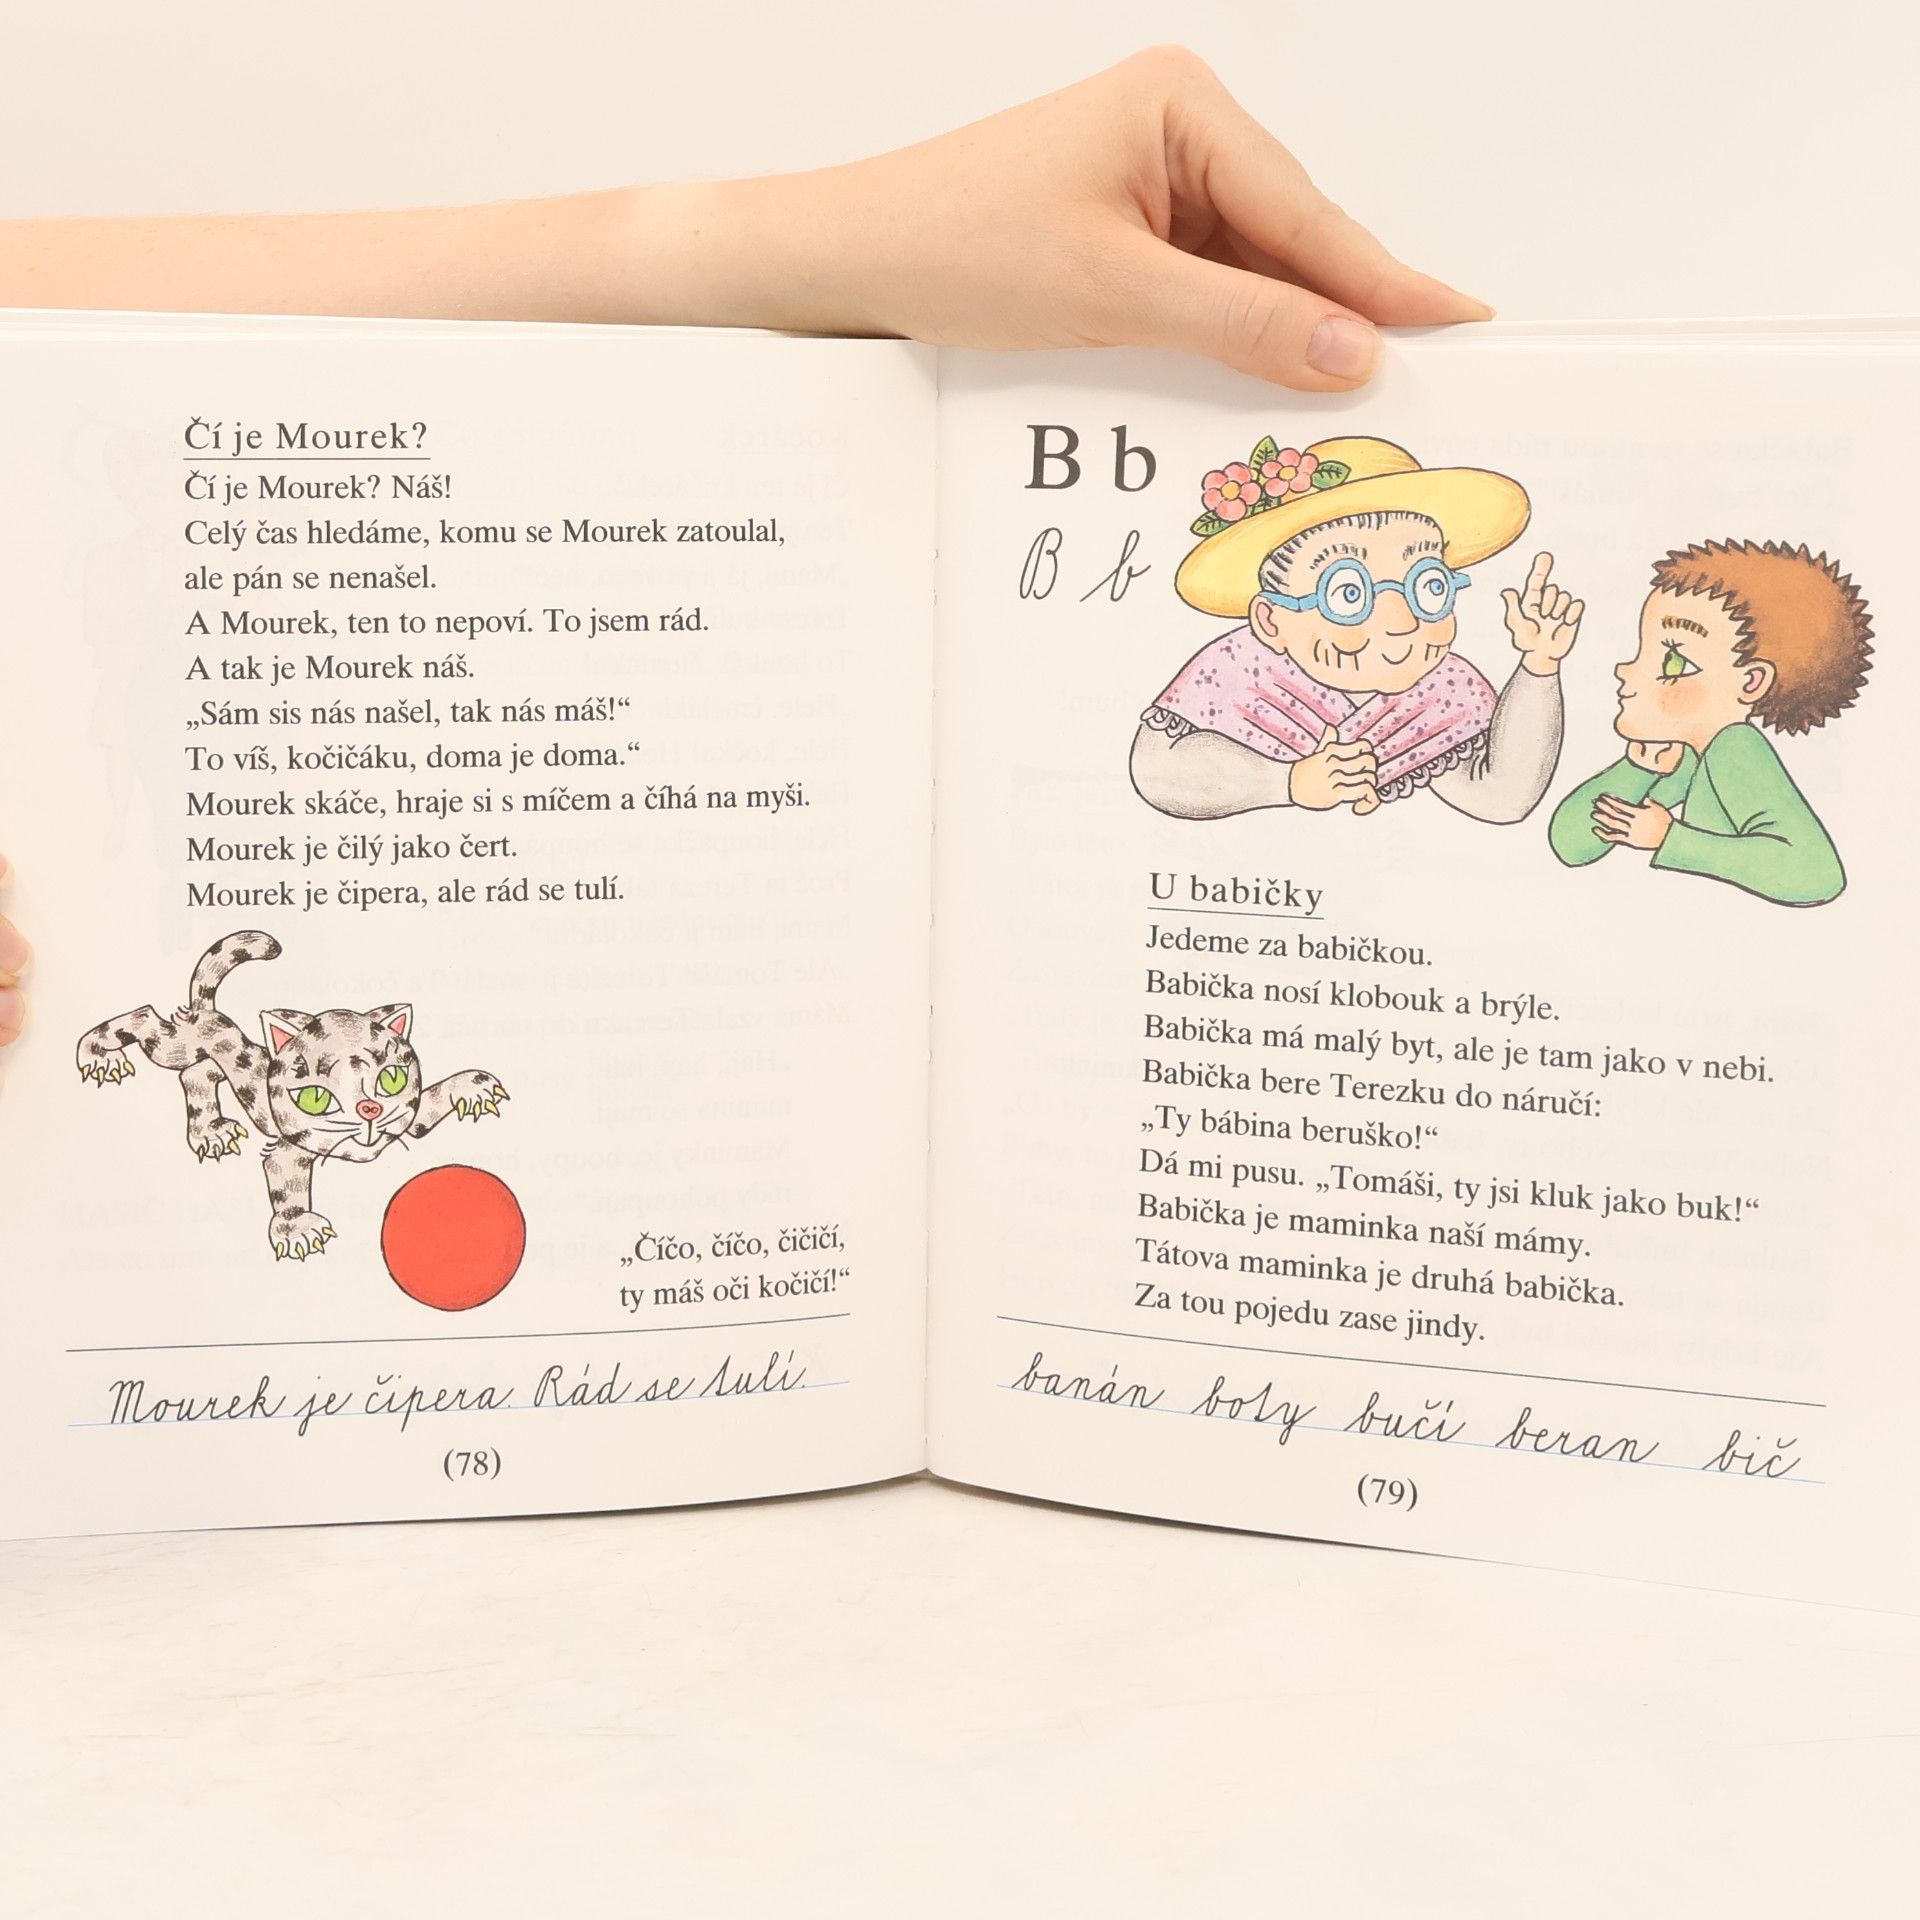 Čí je Mourek?
Čí je Mourek? Náš!
Celý čas hledáme, komu se Mourek zatoulal,
ale pán se nenašel.
A Mourek, ten to nepoví. To jsem rád.
A tak je Mourek náš.
„Sám sis nás našel, tak nás máš!“
To víš, kočičáku, doma je doma.“
Mourek skáče, hraje si s míčem a číhá na myši.
Mourek je čilý jako čert.
Mourek je čipera, ale rád se tulí.
„Číčo, číčo, čičičí,
ty máš oči kočičí!“
Mourek je čipera. Rád se tulí.
(78)
B b
B b
U babičky
Jedeme za babičkou.
Babička nosí klobouk a brýle.
Babička má malý byt, ale je tam jako v nebi.
Babička bere Terezku do náručí:
„Ty bábina beruško!“
Dá mi pusu. „Tomáši, ty jsi kluk jako buk!“
Babička je maminka naší mámy.
Tátova maminka je druhá babička.
Za tou pojedu zase jindy.
banán boty bučí beran bič
(79)